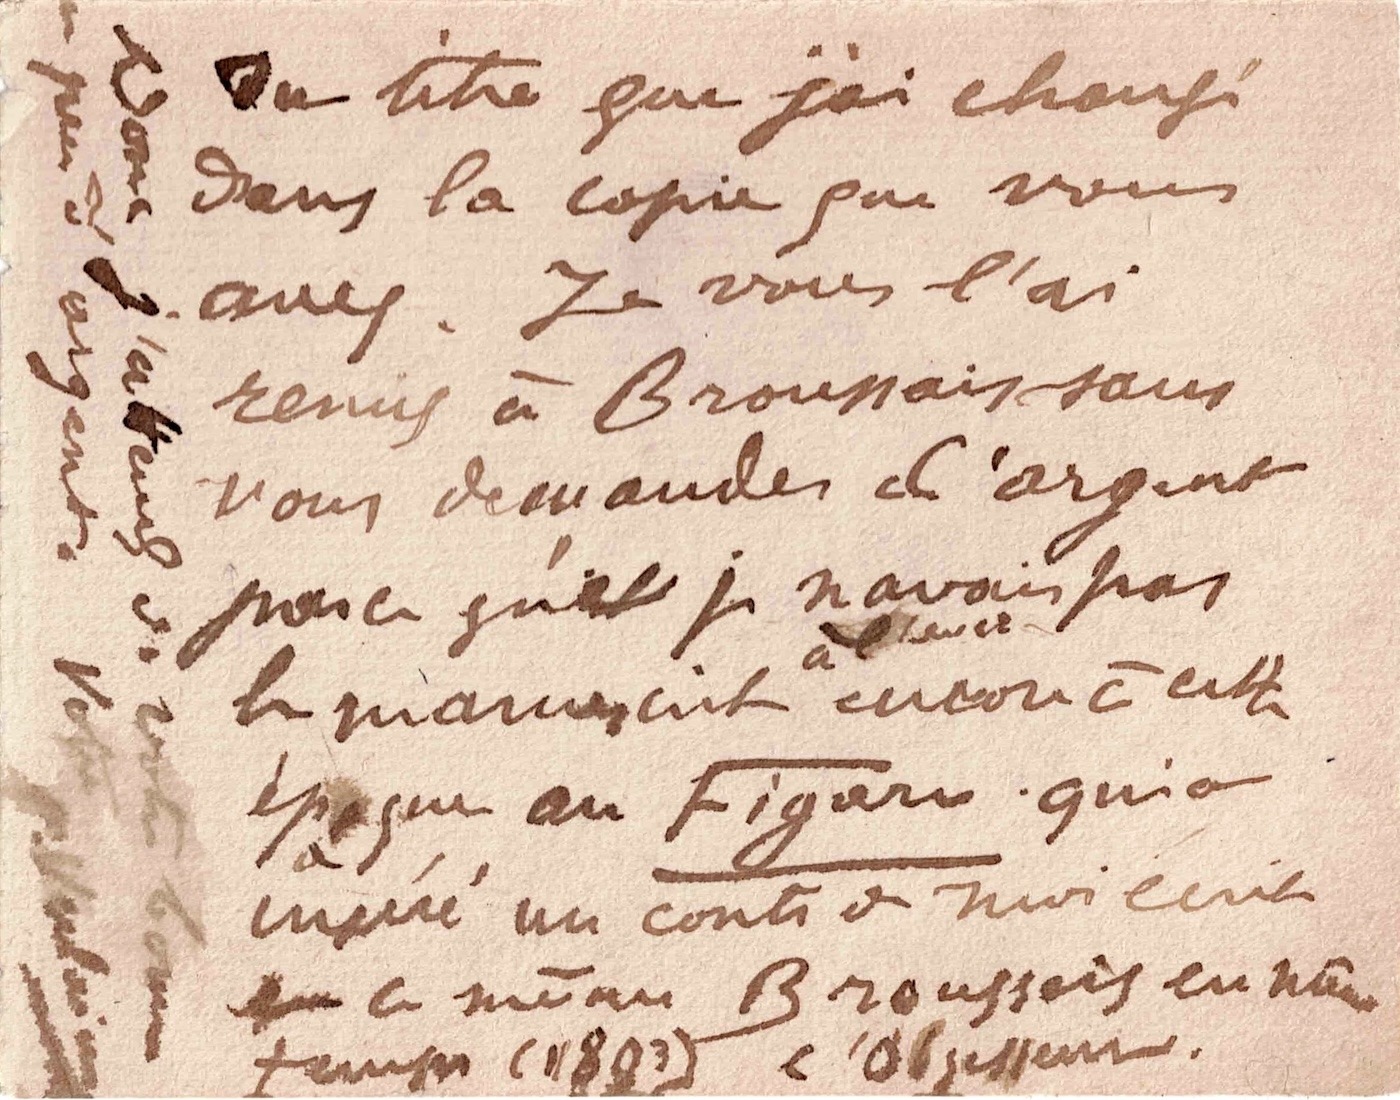 Du titre que j'ai changé
dans la copie que vous
avez. Je vous l'ai
remis à Broussais sans
vous demander d'argent
parce qu' je n'avais pas
à
le manuscrit encore à cette
époque au Figaro qui a
a
inséré un conte de moi écrit
ce même Broussais en même
temps (1893) l'Obsesseur.
Donc j'attends bon
peu d'argent. Votre P. Verlaine